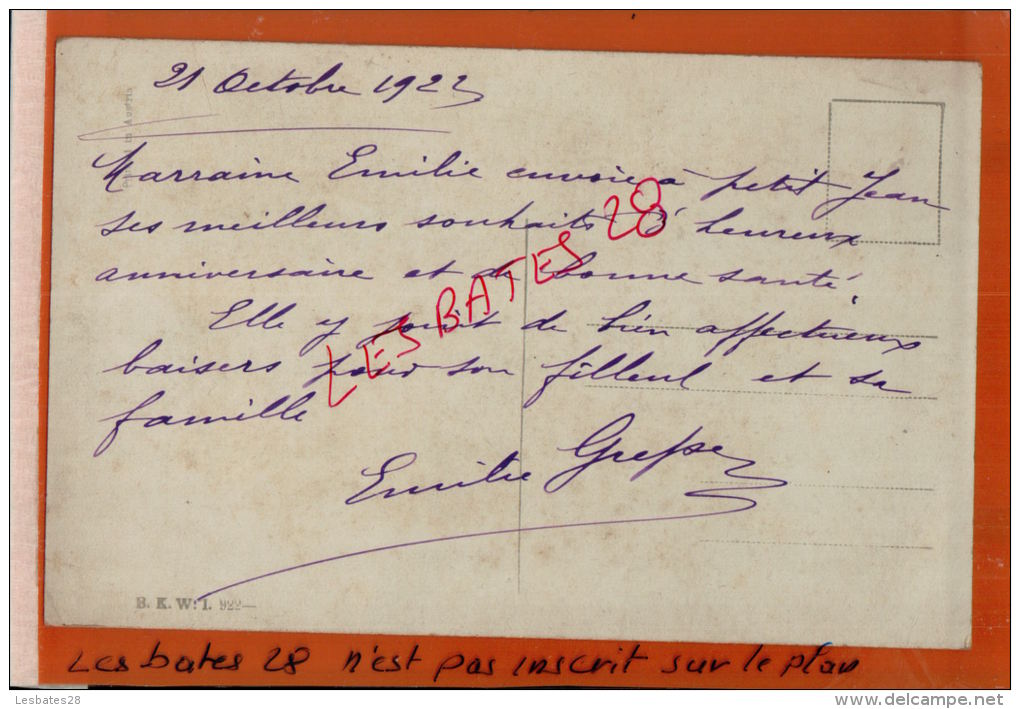 21 Octobre 1922
Marraine Emilie envoie à petit Jean
ses meilleurs souhaits d'heureux
anniversaire et de bonne santé.
Elle y joint de bien affectueux
baisers pour son filleul et sa
famille
Emilie
LES BATES 28
B. K. W. I. 922—
Les bates 28 n'est pas inscrit sur le plan
Lesbates28
delcampe.net